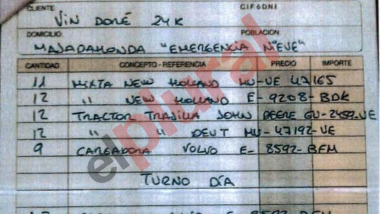 CLIENTE CIF ó DNI
VIN DORÉ 24K
DOMICILIO POBLACIÓN
MAJADAHONDA "EMERGENCIA NIEVE"
CANTIDAD CONCEPTO - REFERENCIA PRECIO IMPORTE
11 MIXTA NEW HOLLAND MU-VE 47165
12 " NEW HOLLAND E-9208-BDK
12 TRACTOR TRAILLA JOHN DEERE GU-2459-VE
12 " " DEUT MU-47192-VE
9 CARGADORA VOLVO E-8592-BFM
TURNO DÍA
elplural